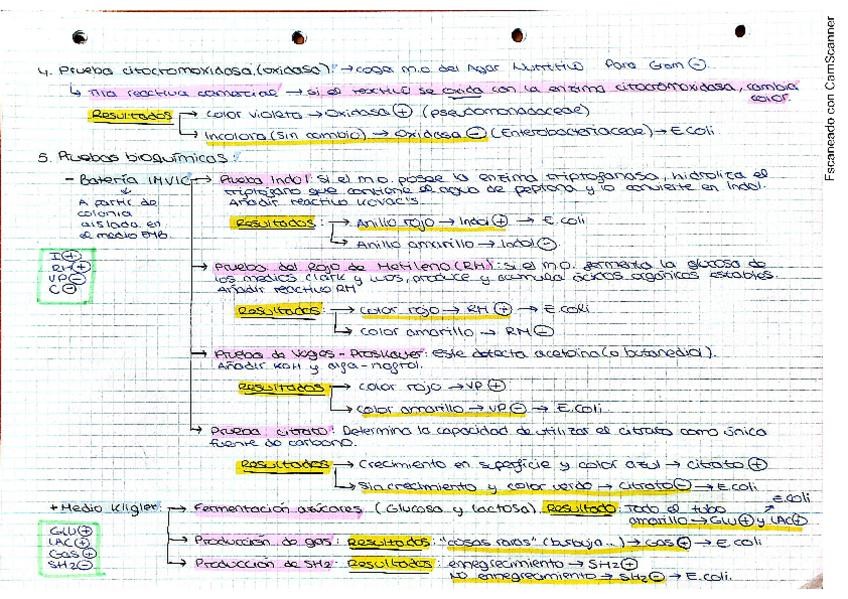 4. Prueba citocromoxidasa (oxidasa): → coge m.o. del Agar Nutritivo Para Gram ⊖
↳ Tira reactiva comercial → si el reactivo se oxida con la enzima citocromoxidasa, cambia
color.
Resultados → color violeta → Oxidasa ⊕ (pseumonadaceae)
→ Incolora (sin cambio) → Oxidasa ⊖ (Enterobacteriaceae) → E.coli
5. Pruebas bioquímicas:
- Batería IMVIC → Prueba Indol: si el m.o. posee la enzima triptofanasa, hidroliza el
triptófano que contiene el agua de peptona y lo convierte en Indol.
Añadir reactivo Kovac's
A partir de
colonia
aislada en
el medio EMB.
Resultados: → Anillo rojo → Indol ⊕ → E.coli
→ Anillo amarillo → Indol ⊖
I ⊕
RM ⊕
VP ⊖
C ⊖
→ Prueba del Rojo de Metileno (RM): si el m.o. fermenta la glucosa de
los medios Clark y Lubs, produce y acumula ácidos orgánicos estables.
Añadir reactivo RM
Resultados: → color rojo → RM ⊕ → E.coli
→ color amarillo → RM ⊖
→ Prueba de Voges-Proskauer: este detecta acetoína (o butanediol).
Añadir KOH y alfa-naftol.
Resultados → color rojo → VP ⊕
→ color amarillo → VP ⊖ → E.coli
→ Prueba citrato: Determina la capacidad de utilizar el citrato como única
fuente de carbono.
Resultados → Crecimiento en superficie y color azul → citrato ⊕
→ Sin crecimiento y color verde → citrato ⊖ → E.coli
+ Medio Kligler: → Fermentación azúcares (Glucosa y lactosa). Resultado: Todo el tubo
amarillo → Glu ⊕ y LAC ⊕ ↗ E.coli
GLU ⊕
LAC ⊕
Gas ⊕
SH2 ⊖
→ Producción de gas: Resultados: "cosas raras" (burbuja...) → Gas ⊕ → E.coli
→ Producción de SH2: Resultados: ennegrecimiento → SH2 ⊕
No ennegrecimiento → SH2 ⊖ → E.coli.
Escaneado con CamScanner